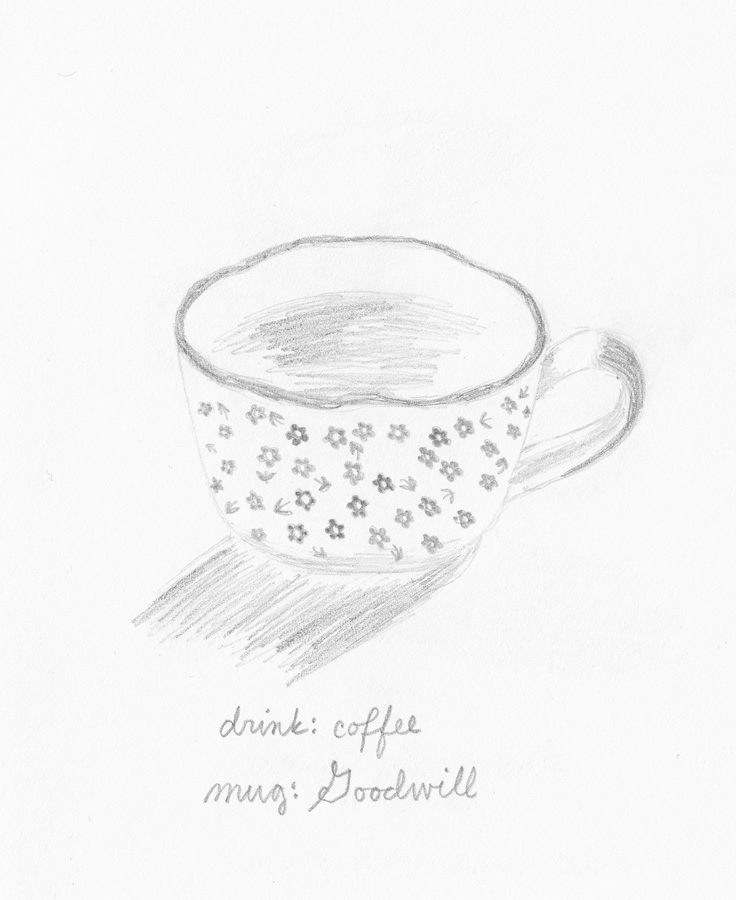 drink: coffee
mug: Goodwill